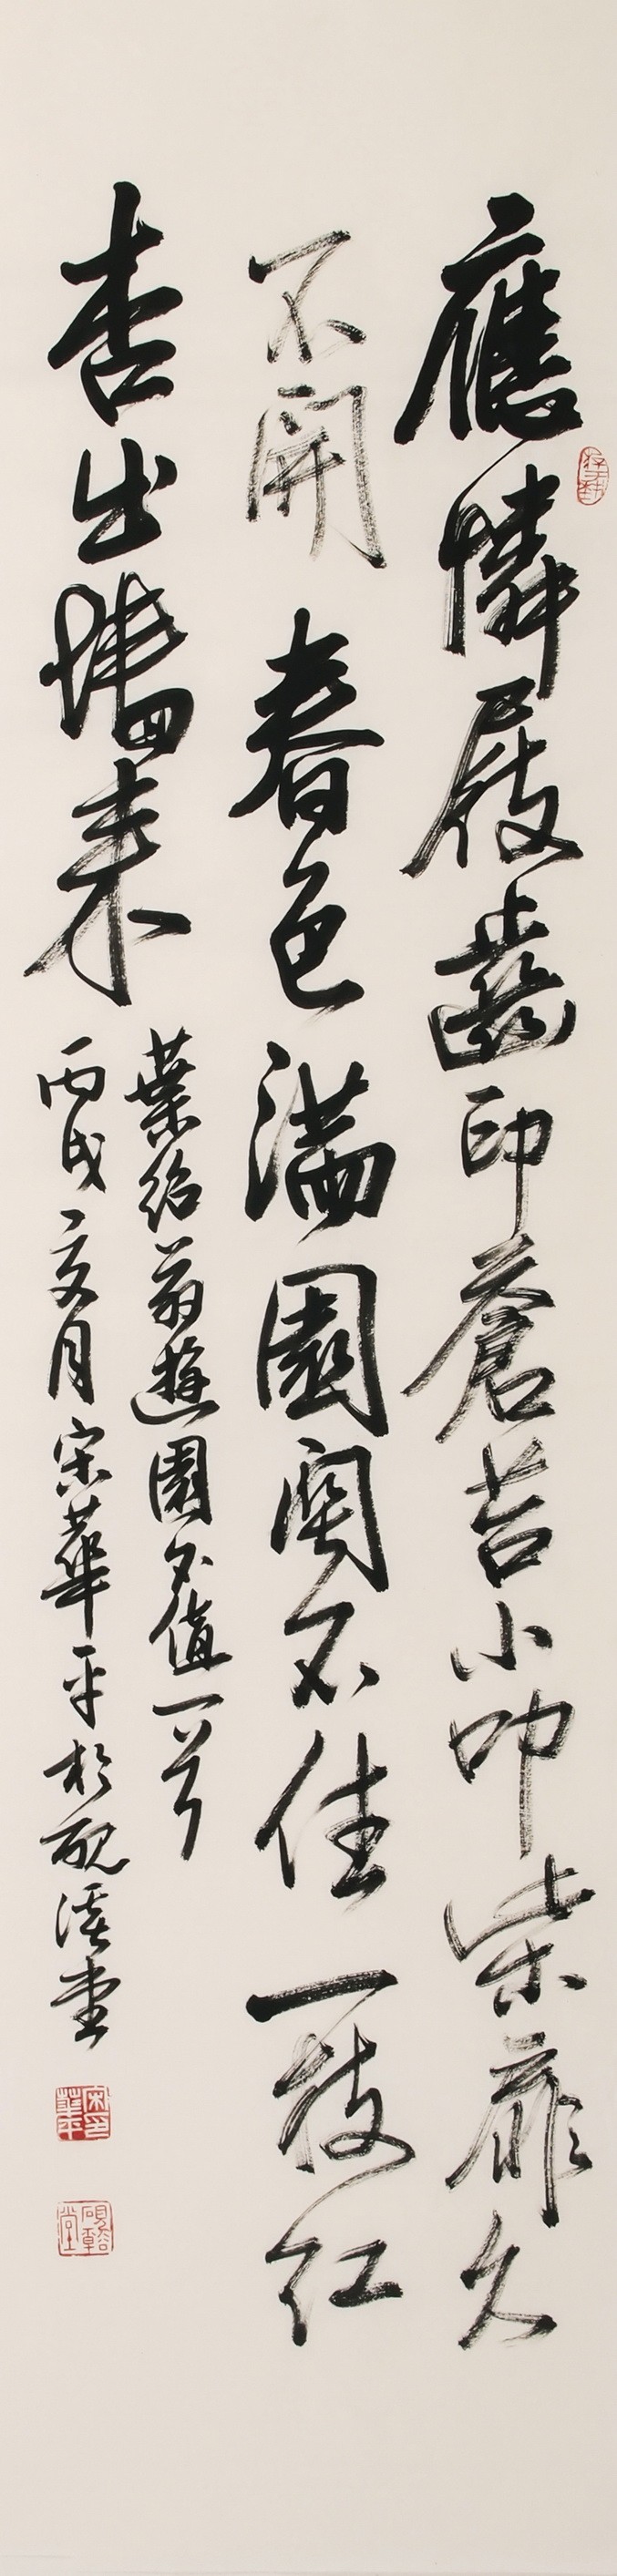 應憐屐齒印蒼苔小叩柴扉久
不開春色滿園關不住一枝紅
杏出墻來
葉紹翁遊園不值一首
丙戌月宋華平於硯溪堂
宋印華平